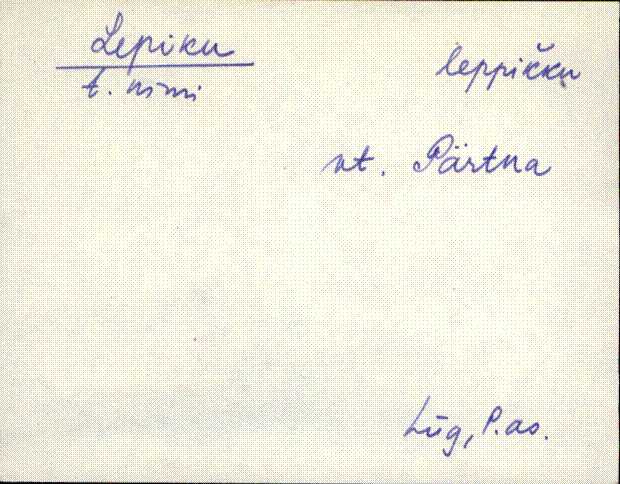 Lepiku
leppikku
t. nimi
vt. Pärtna
Lüg, P. as.